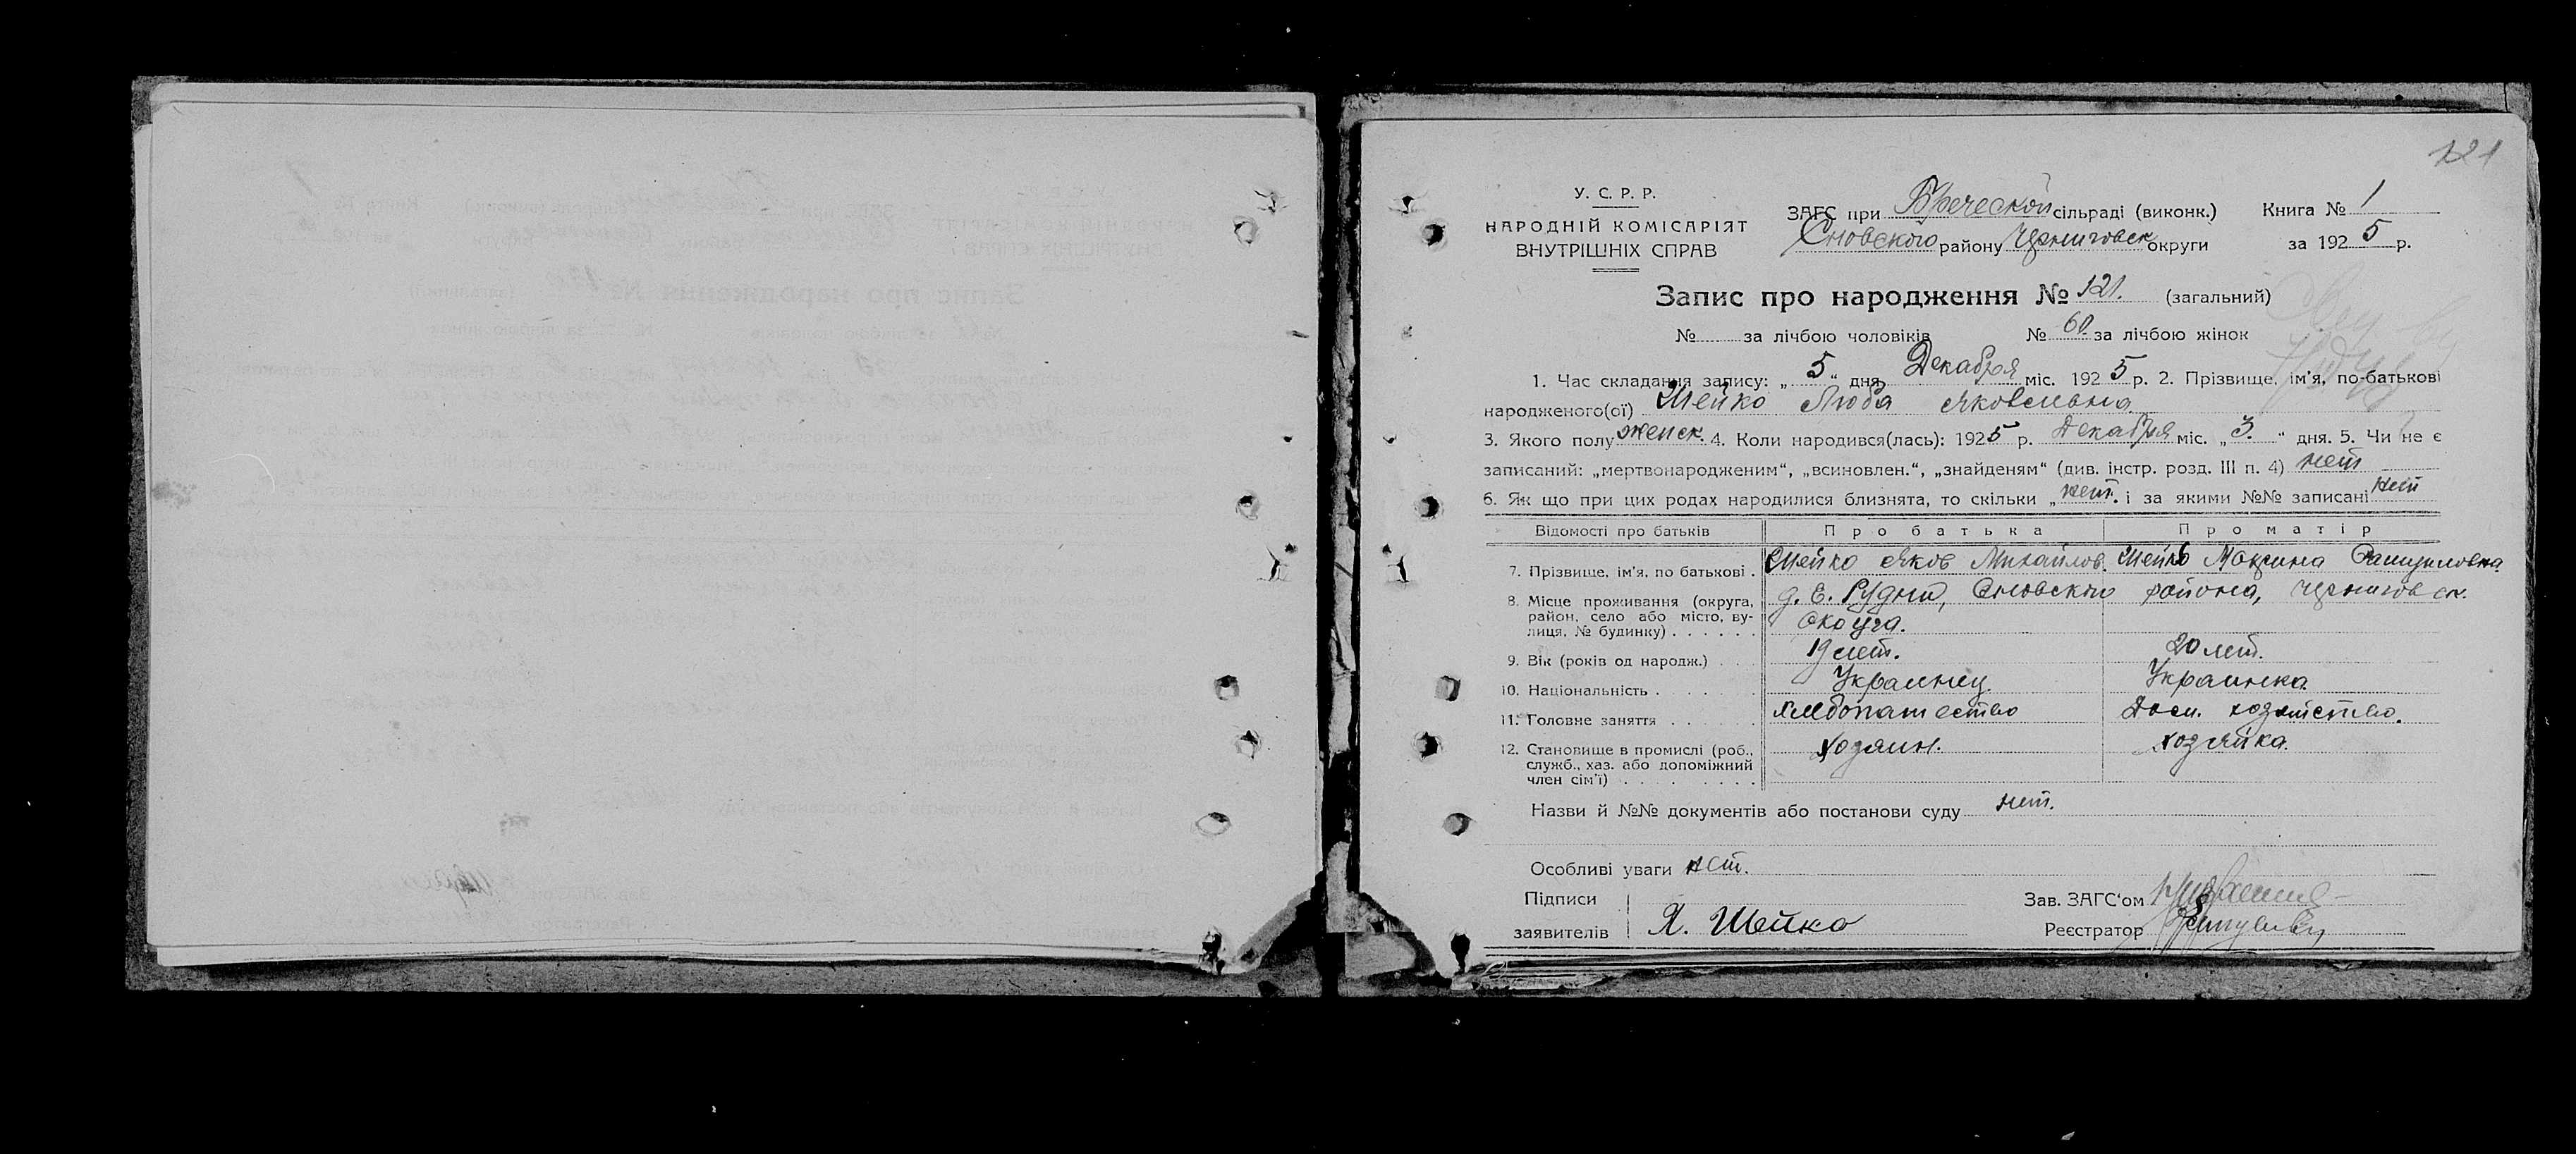 121
У. С. Р. Р.
НАРОДНІЙ КОМІСАРІЯТ
ВНУТРІШНІХ СПРАВ
ЗАГС при сільраді (виконк.) Книга № 1
Сновского району Черниговск округи за 1925 р.
Запис про народження № 121. (загальний)
№ за лічбою чоловіків № 60. за лічбою жінок
1. Час складання запису: „ 5 “ дня Декабря міс. 1925 р. 2. Прізвище, ім'я, по-батькові
народженого(ої) Шейко Люба Яковлевна
3. Якого полу женск. 4. Коли народився(лась): 1925 р. Декабря міс. „ 3. “ дня. 5. Чи не є
записаний: „мертвонародженим“, „всиновлен.“, „знайденям“ (див. інстр. розд. III п. 4) нет
6. Як що при цих родах народилися близнята, то скільки „ нет. і за якими №№ записані нет
Відомості про батьків Про батька Про матір
7. Прізвище, ім'я, по батькові . Шейко Яков Михайлов. Шейко Марина
8. Місце проживання (округа, д. Е. Рудни, Сновского района, Черниговск.
район, село або місто, ву-
лиця, № будинку) . . . . . . округа.
9. Вік (років од народж.) . . 19 лет. 20 лет.
10. Національність . . . . . Украинец Украинка
11. Головне заняття . . . . . хлебопашество Дом. хозяйство.
12. Становище в промислі (роб., хозяин. хозяйка.
служб., хаз. або допоміжний
член сім'ї) . . . . . . . .
Назви й №№ документів або постанови суду нет.
Особливі уваги нет.
Підписи Зав. ЗАГС‘ом
заявителів Я. Шейко Реєстратор